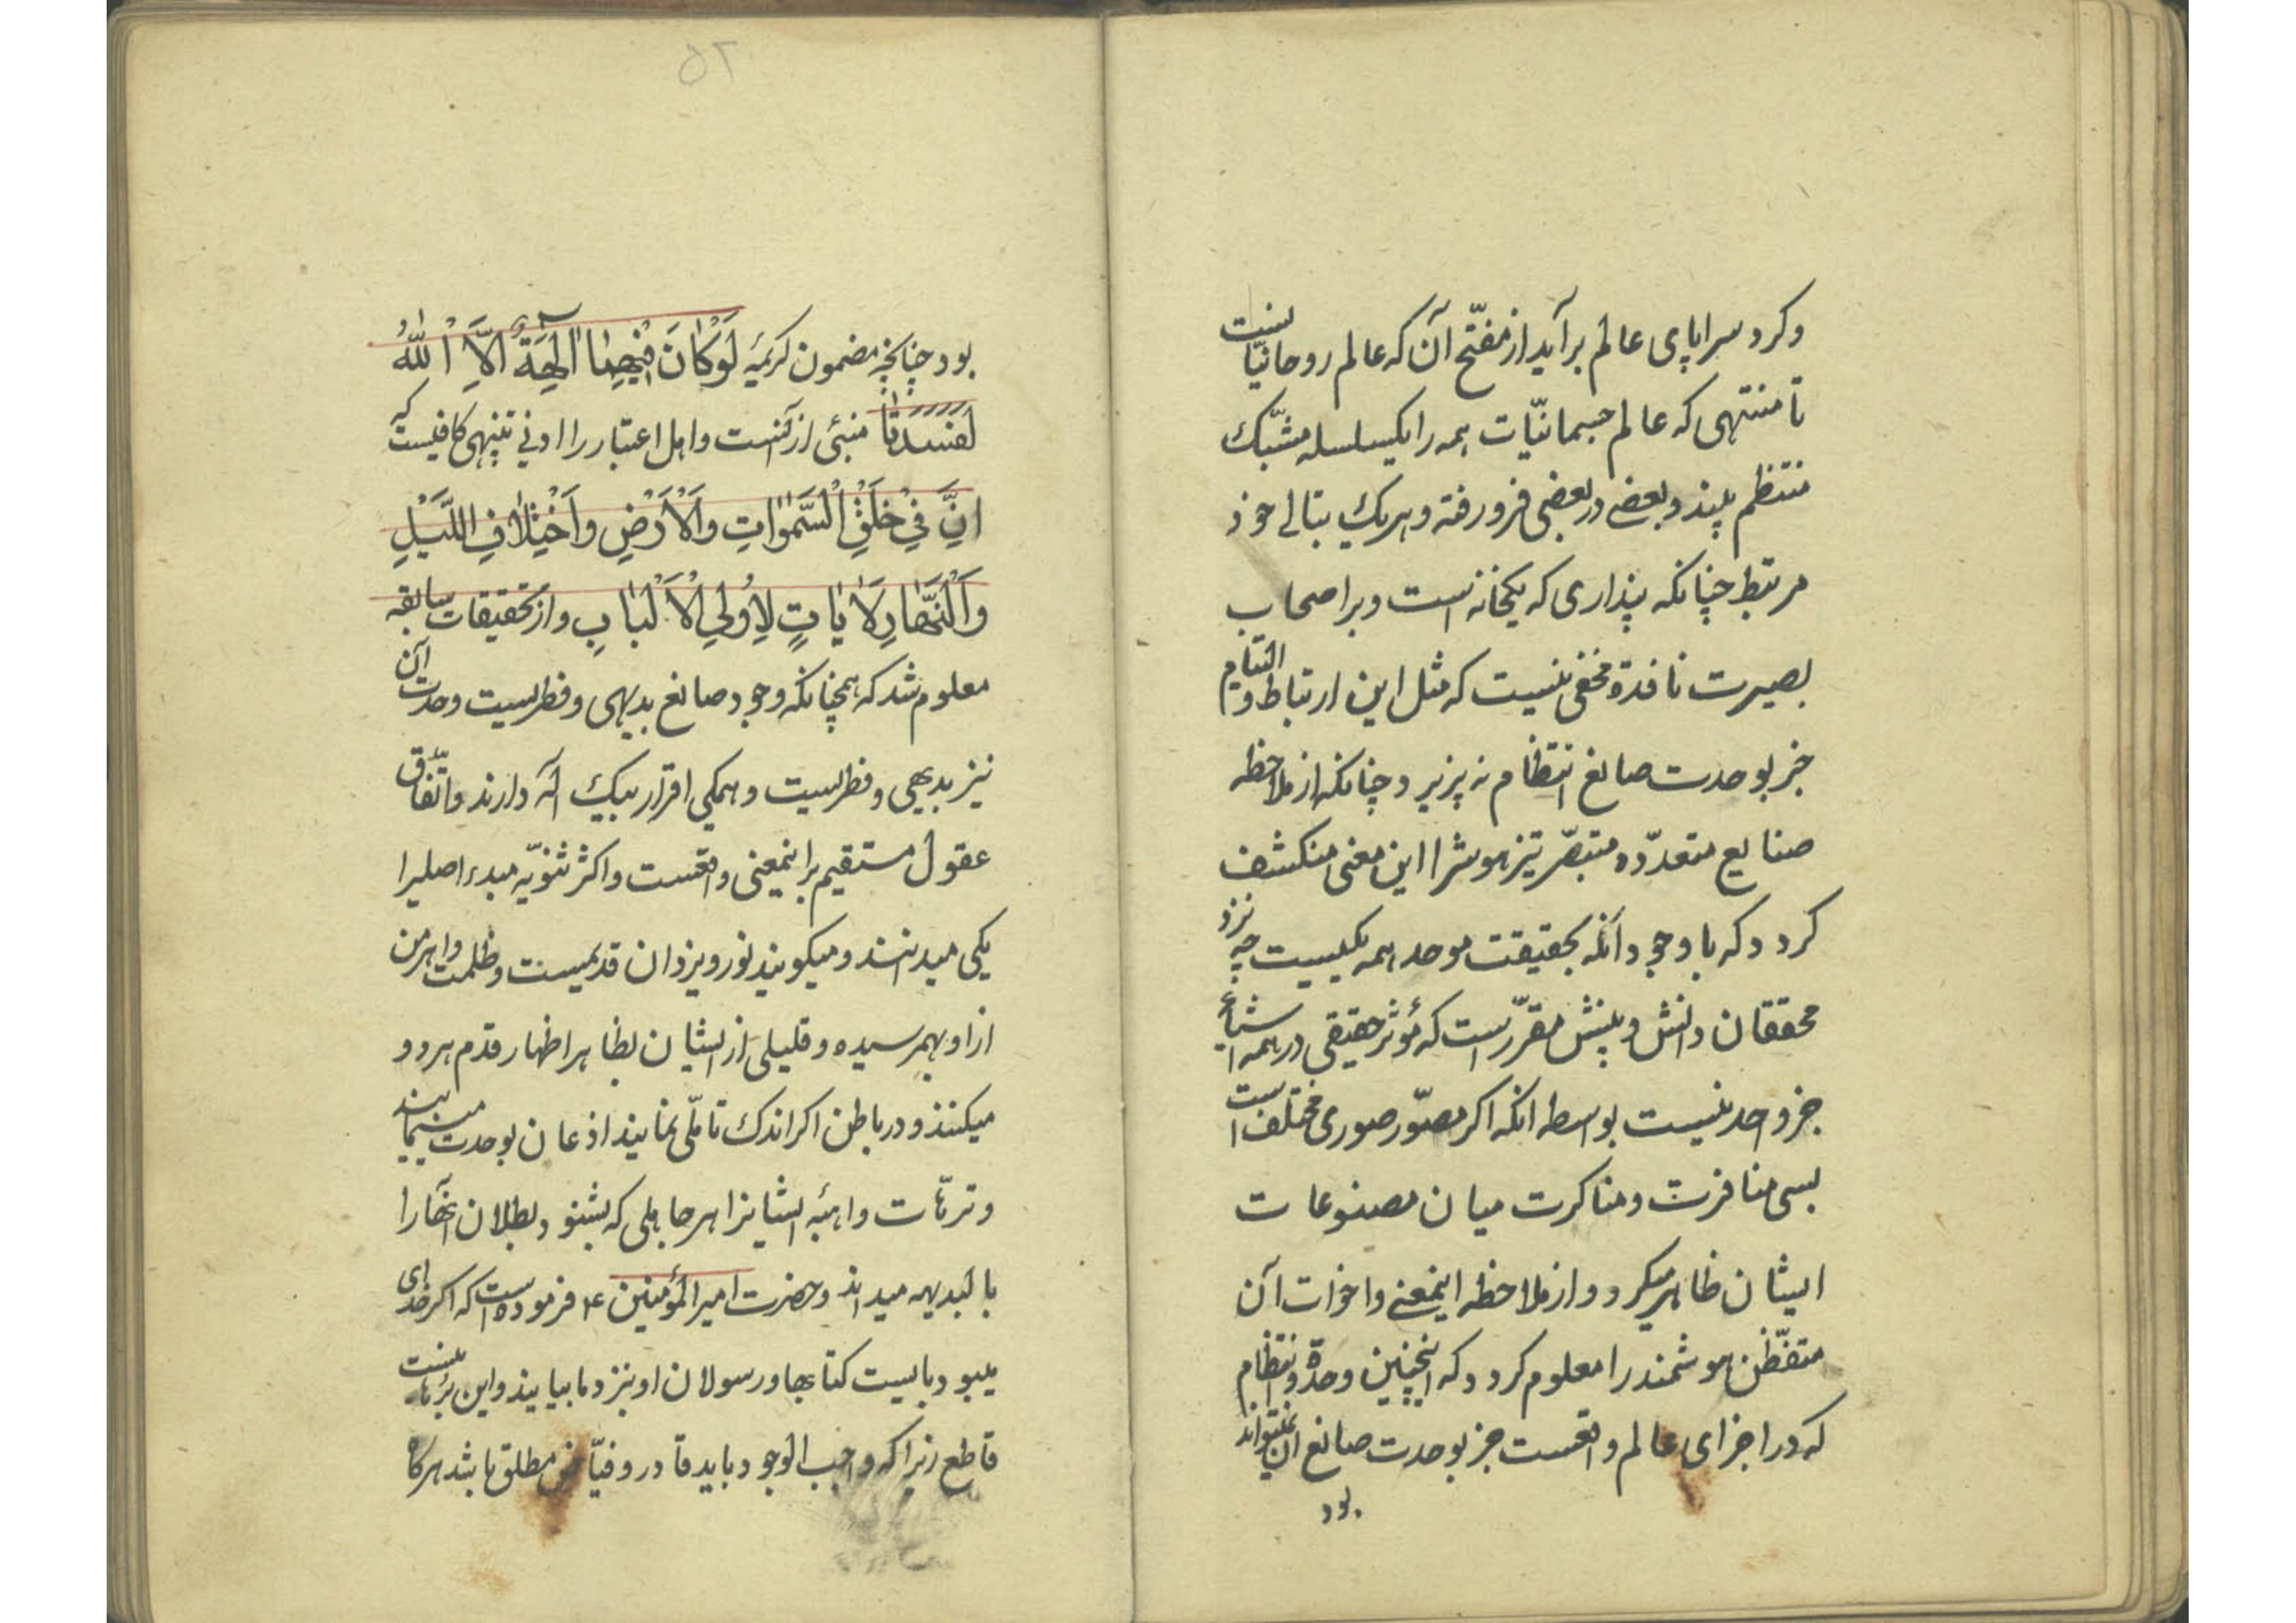 وکرد سراپای عالم برآید از مفتّح آن که عالم روحانیّاتست
تا منتهی که عالم جسمانیّات همه را یکسلسله مشبّک
منتظم بیند و بعضی در بعضی فرو رفته و هر یک بتالی خود
مرتبط چنانکه پنداری که یکخانه است و بر اصحاب
بصیرت نافذة مخفی نیست که مثل این ارتباط و التیام
جز بوحدت صانع انتظام نه پزیرد و چنانکه از ملاحظه
صنایع متعدّده متبصّر تیز هوش را این معنی منکشف
کردد که با وجود آنکه بحقیقت موحد همه یکیست چه نزد
محققان دانش و بینش مقرّر است که مؤثر حقیقی در همه اشیاء
جز واحد نیست بواسطه انکه اکر مصوّر صوری مختلف است
بسی منافرت و مناکرت میان مصنوعات
ایشان ظاهر میکردد و از ملاحظه اینمعنی و اخوات آن
متفطّن هوشمند را معلوم کردد که اینچنین وحدة و انتظام
که در اجزای عالم واقعست جز بوحدت صانع ان نمیتواند
بود
۵۲
بود چنانچه مضمون کریمه لَوْ کَانَ فِیْهِمَا اٰلِهَةٌ اِلَّا اللّٰهُ
لَفَسَدَتَا منبئی از آنست و اهل اعتبار را ادنی تنبیهی کافیست که
اِنَّ فِیْ خَلْقِ السَّمٰوَاتِ وَالْاَرْضِ وَاخْتِلَافِ اللَّیْلِ
وَالنَّهَارِ لَاٰیَاتٍ لِاُولِی الْاَلْبَابِ و از تحقیقات سابقه
معلوم شد که همچنانکه وجود صانع بدیهی و فطریست وحدت آن
نیز بدیهی و فطریست و همکی اقرار بیک اله دارند و اتّفاق
عقول مستقیم بر اینمعنی واقعست و اکثر ثنویّه مبدء اصلیرا
یکی میدانند و میکویند نور و یزدان قدیمست و ظلمت و اهرمن
از او بهمرسیده و قلیلی از ایشان بظاهر اظهار قدم هر دو
میکنند و در باطن اکر اندک تاملّی نمایند اذعان بوحدت مینمایند
و ترّهات واهیه ایشانرا هر جاهلی که بشنود بطلان انهارا
بالبدیهه میداند و حضرت امیر المؤمنین ع فرموده است که اکر خدای
میبود بایست کتابها و رسولان او بنزد ما بیایند و این برهانیست
قاطع زیرا که واجب الوجود باید قادر و فیّاض مطلق باشد هرکاه